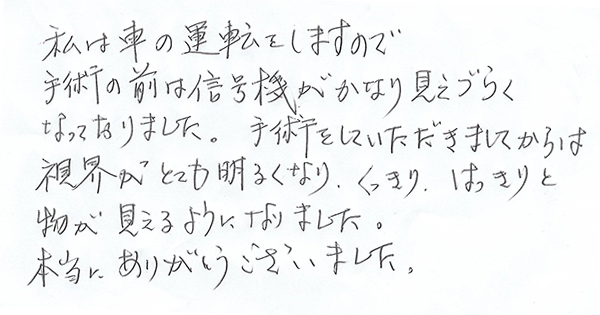 私は車の運転をしますので
手術の前は信号機がかなり見えづらく
なっておりました。手術をしていただきましてからは
視界がとても明るくなり、くっきり、はっきりと
物が見えるようになりました。
本当にありがとうございました。